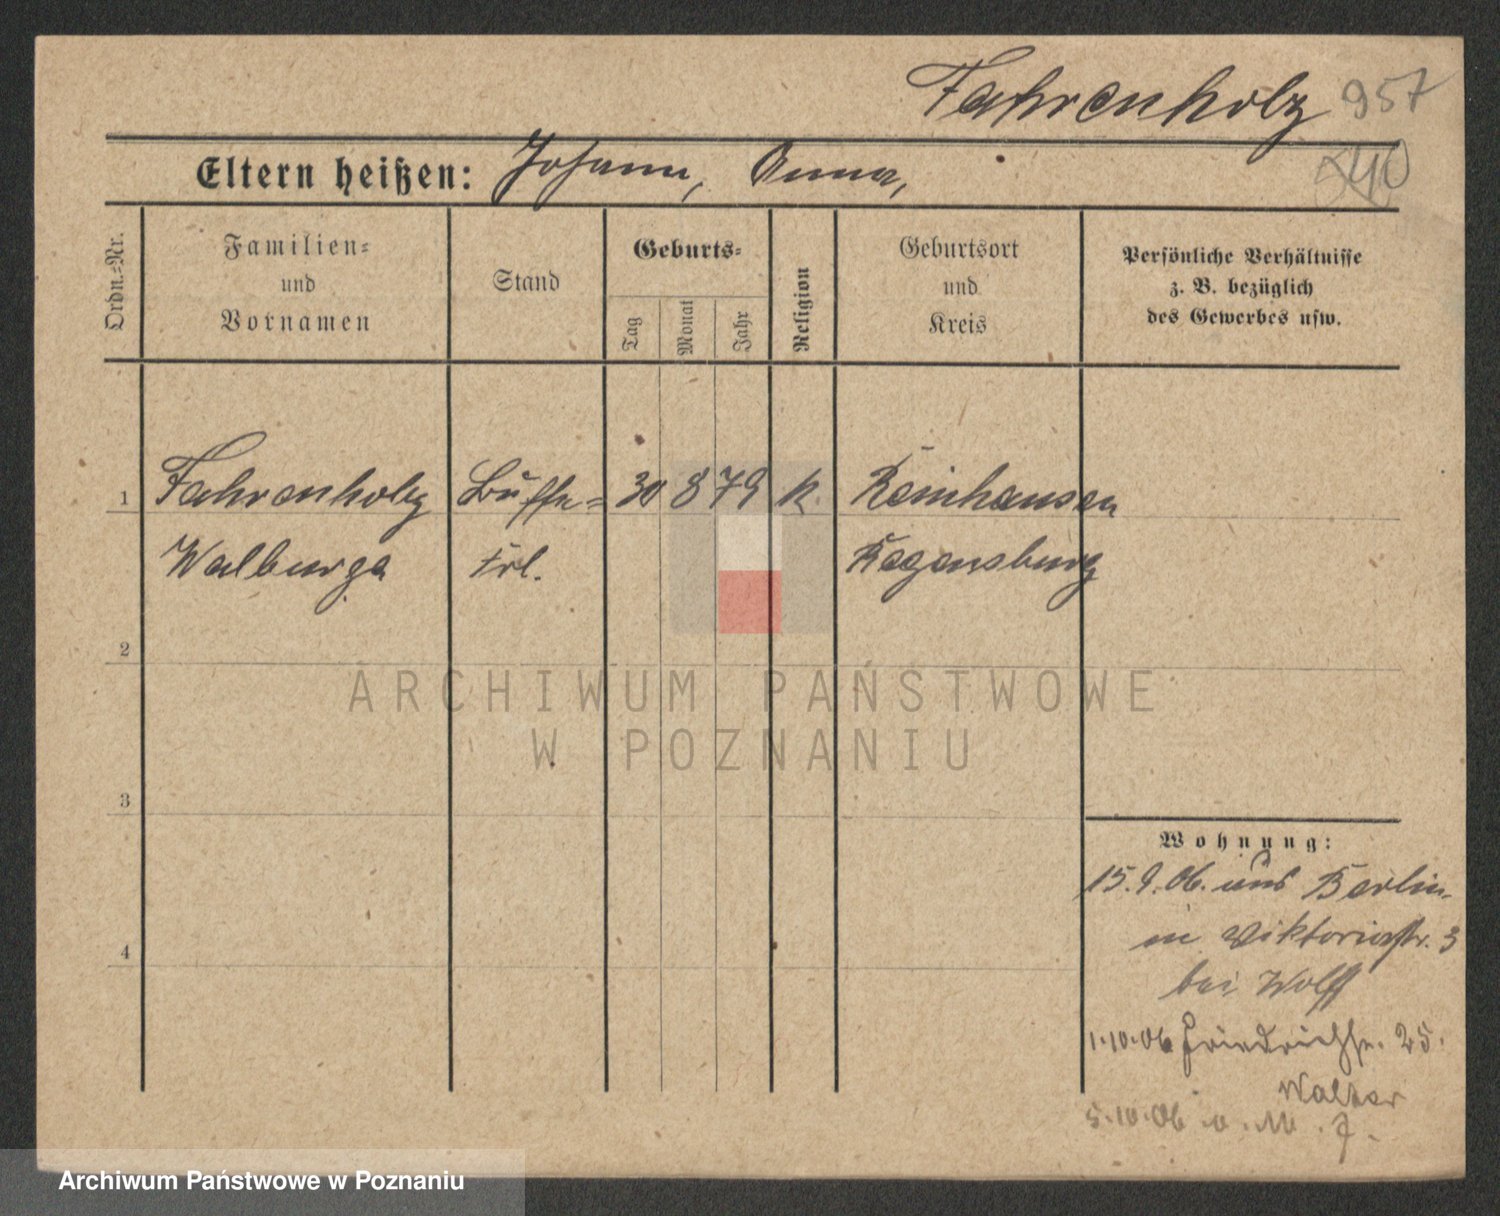 Fahrenholz 957
Eltern heißen: Johann, Anna,
540
Ordn.=Nr.
Familien=
und
Vornamen
Stand
Geburts=
Tag
Monat
Jahr
Religion
Geburtsort
und
Kreis
Persönliche Verhältnisse
z. B. bezüglich
des Gewerbes usw.
1 Fahrenholz Büffe= 30 8 79 k. Reinhausen
Walburga frl. Regensburg
2
ARCHIWUM PAŃSTWOWE
W POZNANIU
3
Wohnung:
15.9.06. aus Berlin
in Viktoriastr. 3
bei Wolff
4
1.10.06 Friedrichstr. 25.
Walter
5.10.06
Archiwum Państwowe w Poznaniu